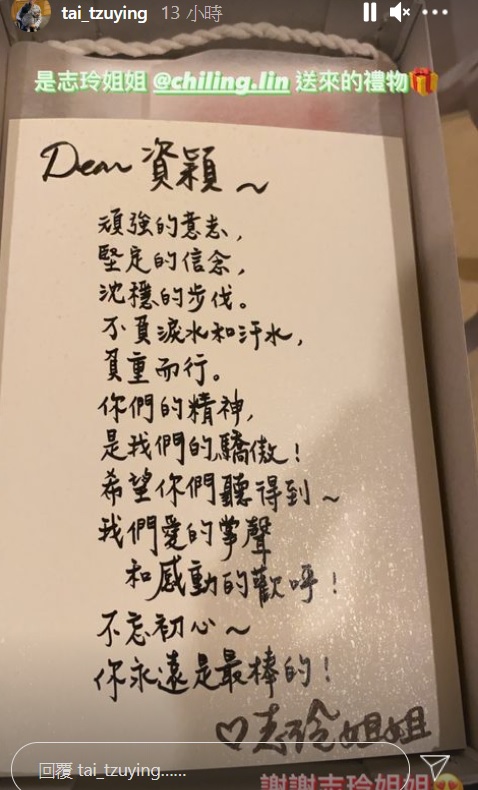 tai_tzuying 13 小時
是志玲姐姐 @chiling.lin 送來的禮物🎁
Dear 資穎~
頑強的意志,
堅定的信念,
沈穩的步伐。
不負淚水和汗水,
負重而行。
你們的精神,
是我們的驕傲!
希望你們聽得到~
我們愛的掌聲
和感動的歡呼!
不忘初心~
你永遠是最棒的!
♡志玲姐姐
謝謝志玲姐姐😍
回覆 tai_tzuying......